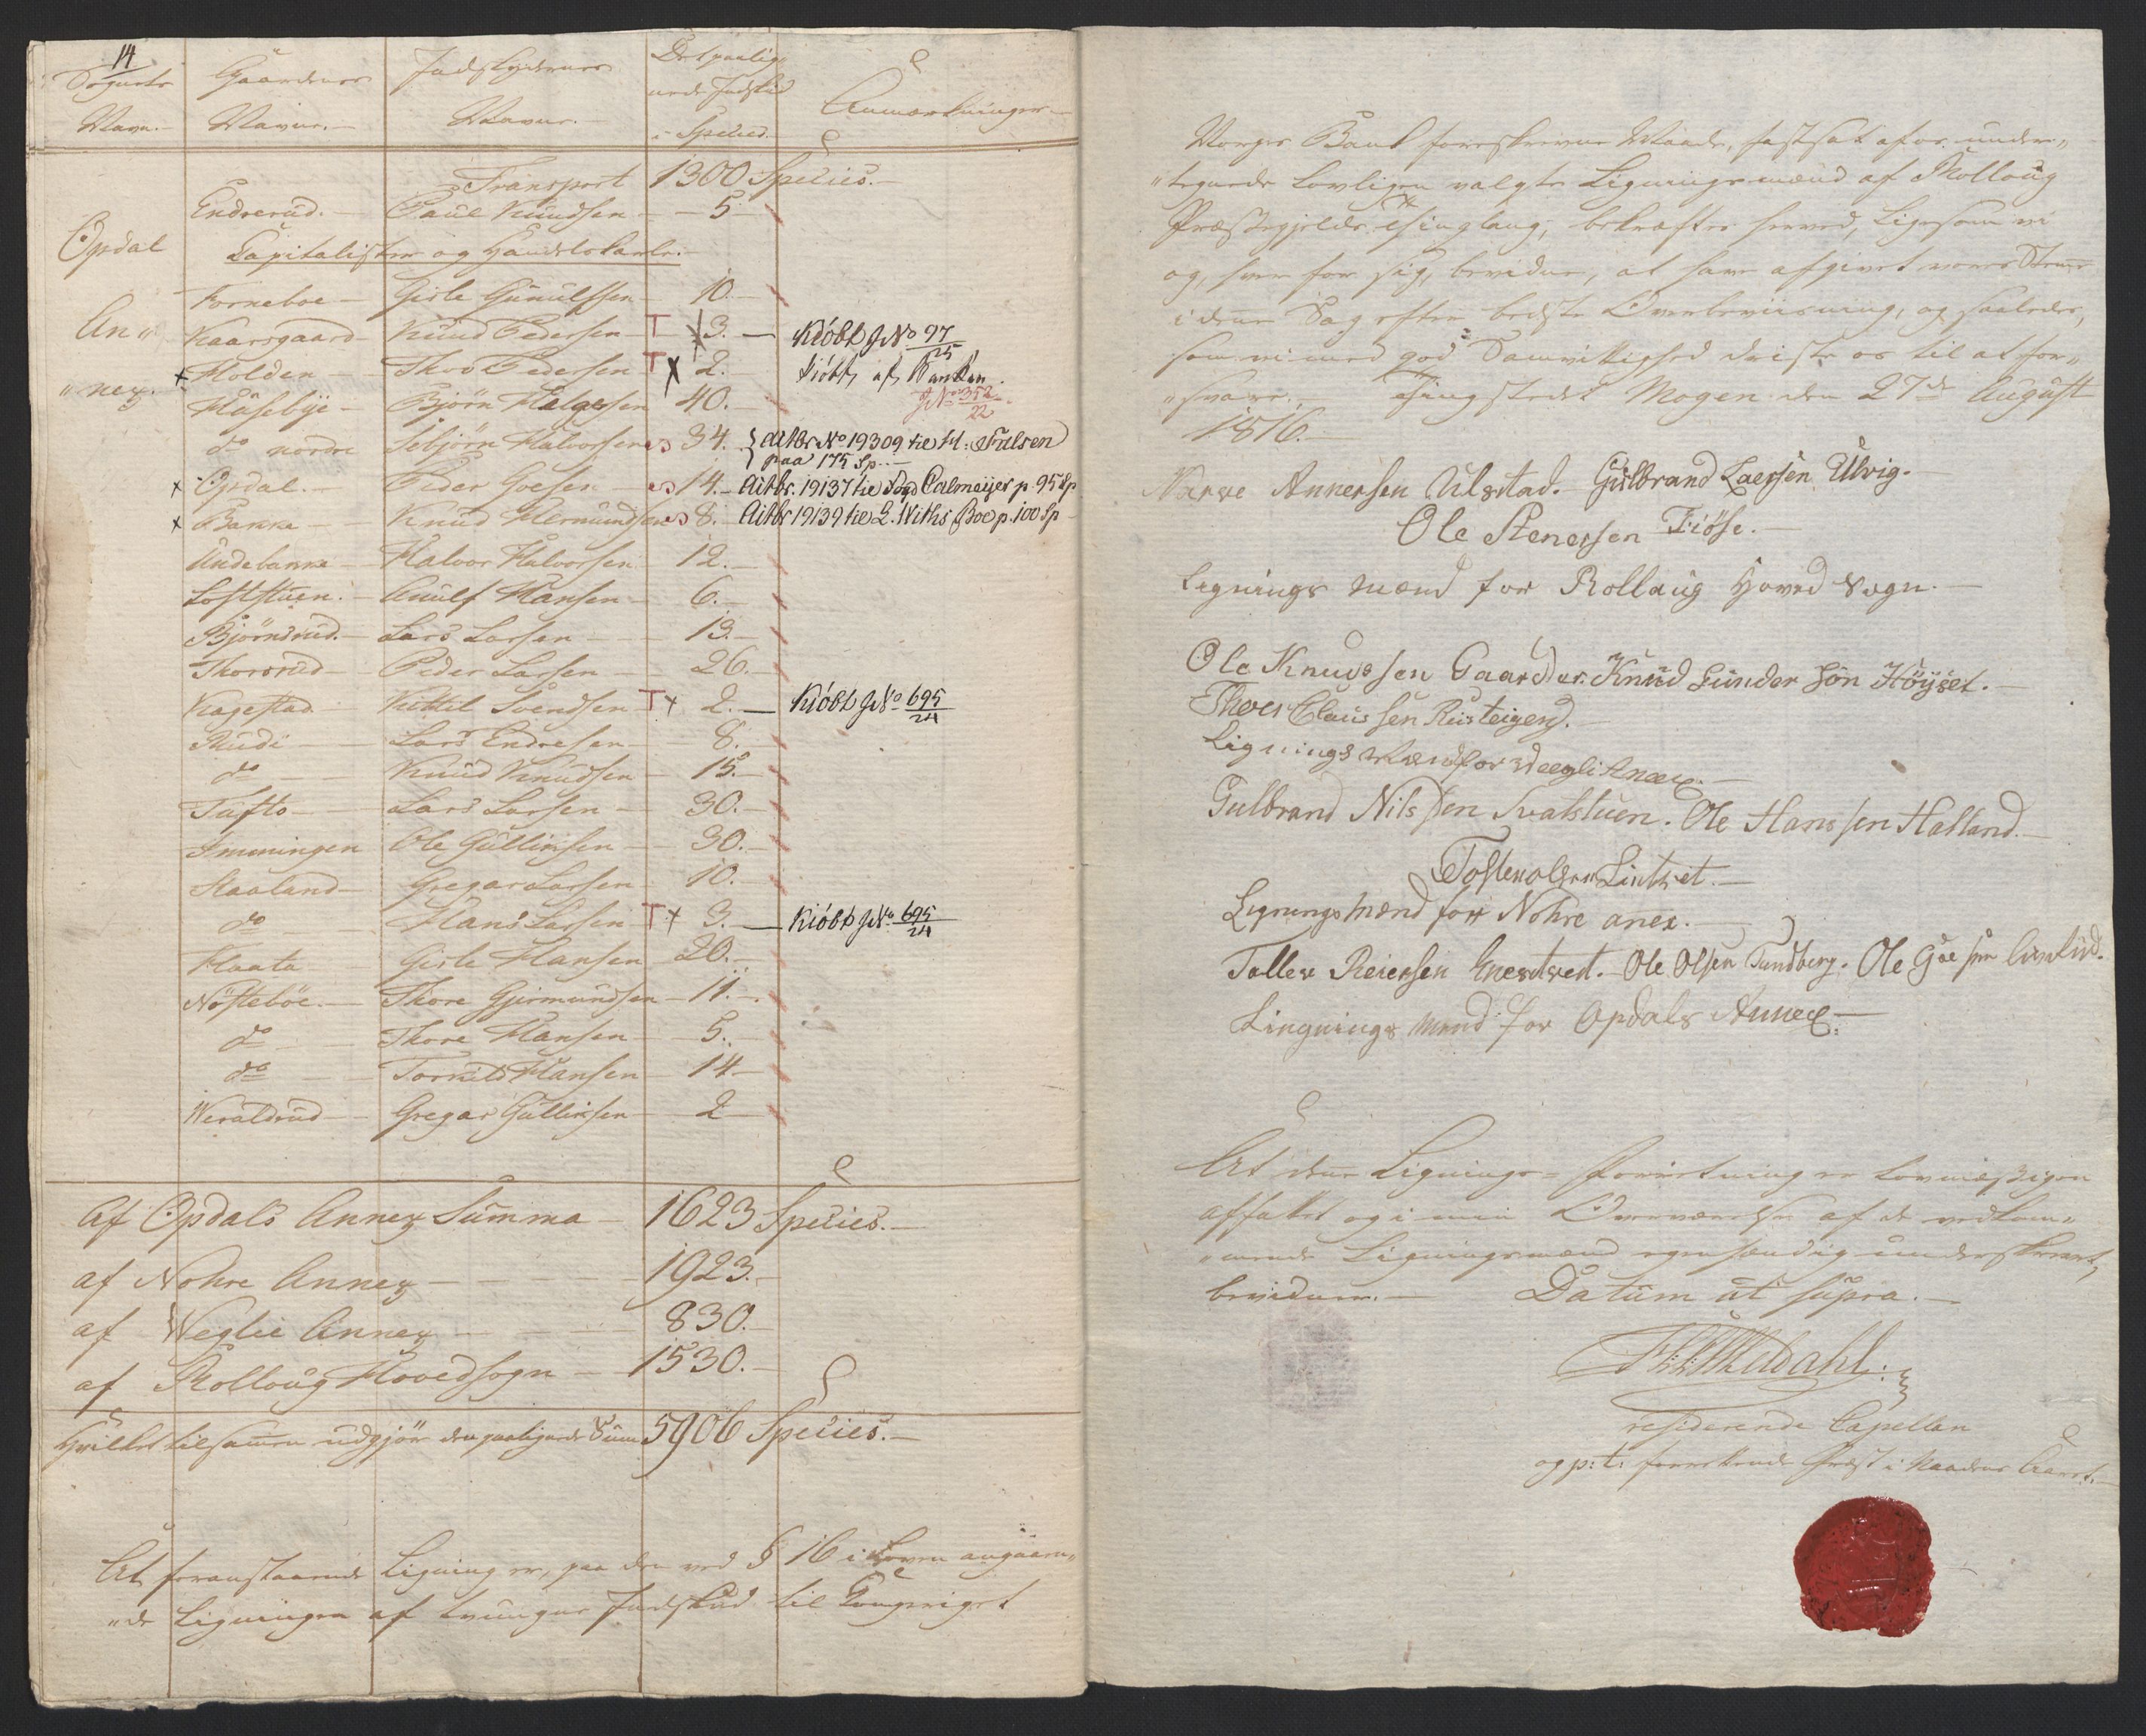 14
Sognets Navn.— Gaardenes Navne.— Indskydernes Navne.— De paalignede Indskud i Species. Anmærkninger.—
Transport 1300 Species.—
Endrerud.— Paul Knudsen — 5
Opdal
Capitalister og Handelskarle.—
Forneboe — Gisle Gunulfsen — 10.—
An„ Kaarsgaard — Knud Pedersen — T x 3.— Kiöbt J No 97/25
x Holden — Thor Pedersen T x 2.— kiöbt af Banken.
„nex. Husebye — Bjørn Helgesen 40.— J No 352/22
do nordre Sebjørn Halvorsen es 34. { Actbr No 19309 til H: Falsen
paa 175 Sp.—
x Opdal.— Peder Goesen es 14.— Actbr. 19137 til Calmeijer p. 95 Sp
x Bakke — Knud Hermundsen es 8.— Actbr 19139 til L. Niths Boe p. 100 Sp
Undebakke — Halvor Halvorsen 12.—
Loftstuen.— Gunulf Hansen — 6.—
Bjørndrud.— Lars Larsen — 13.—
Thorsrud — Peder Larsen — 26.—
Kagestad — Kittil Svendsen T x 2.— Kiöbt J No 695/24
Rudi — Lars Endresen — 8.—
do — Knud Knudsen — 15.—
Tufto — Lars Larsen — 30.—
Immingen Ole Gulliksen — 30.—
Skaaland — Gregar Larsen — 10.—
do — Hans Larsen T x 3.— Kiöbt J No 695/24
Flaata — Gisle Hansen 20.—
Nøsteboe.— Thore Gjermundsen — 11.—
do — Thore Hansen — 5.—
do — Torkild Hansen — 14—
Weraldrud — Gregar Gulliksen — 2
Af Opdals Annex Summa — 1623 Species.—
af Nohre Annex — 1923.—
af Weglie Annex — 830.—
af Rolloug Hovedsogn — 1530.—
Hvilket tilsamen udgjör den paalignede Sum 5906 Species.—
At foranstaaende Ligning er, paa den ved § 16 i Loven angaaen„
„de Ligningen af tvungne Indskud til Kongeriget
Norges Bank foreskrevne Maade, fastsat af os under„
„tegnede lovligen valgte Ligningsmænd af Rolloug
Præstegjelds Thinglaug, bekræftes herved, ligesom vi
og, hver for sig, bevidne, at have afgivet vores Stemme
i denne Sag efter bedste Overbeviisning, og saaledes,
som vi med god Samvittighed driste os til at for„
„svare.— Tingstedet Mogen den 27de August
1816.—
Narve Annersen Ulstad.— Gulbrand Laersen Ulvig.—
Ole Stenersen Fiöse.—
Lignings mænd for Rollaug Hoved Sogn.—
Ole Knudsen Gaarder. Knud Gunder Søn Höÿset.—
Thoer Claussen Rusteigend.—
Lignings Mænd for Veegli Anex.—
Gulbrand Nilsen Svatstuen. Ole Hanssen Halland.—
Tosten olsen Lintvet.—
Lignings Mænd forr Nohre anex.—
Tollev Reiersen Enerstvet.— Ole Olsen Tundberg. Ole Goe søn
Lingnings mend for Opdals Annex.—
At denne Lignings-Forretning er lovmæssigen
affattet og i min Overværelse af de vedkom„
„mende Ligningsmænd egenhændig underskrevet,
bevidner.— Datum ut supra.—
residerende Capellan
og p: t: forrettende Præst i Naadens Aaret.—